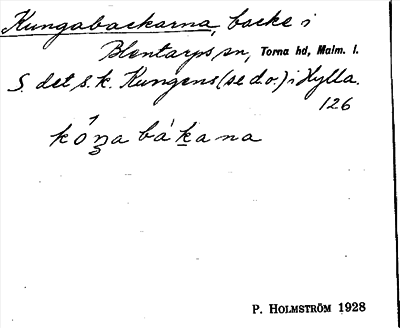 Kungabackarna, backe i
Blentarps sn, Torna hd, Malm. l.
S. det s.k. Kungens (se d.o.) i Hylla.
126
kóŋa bákana
P. HOLMSTRÖM 1928